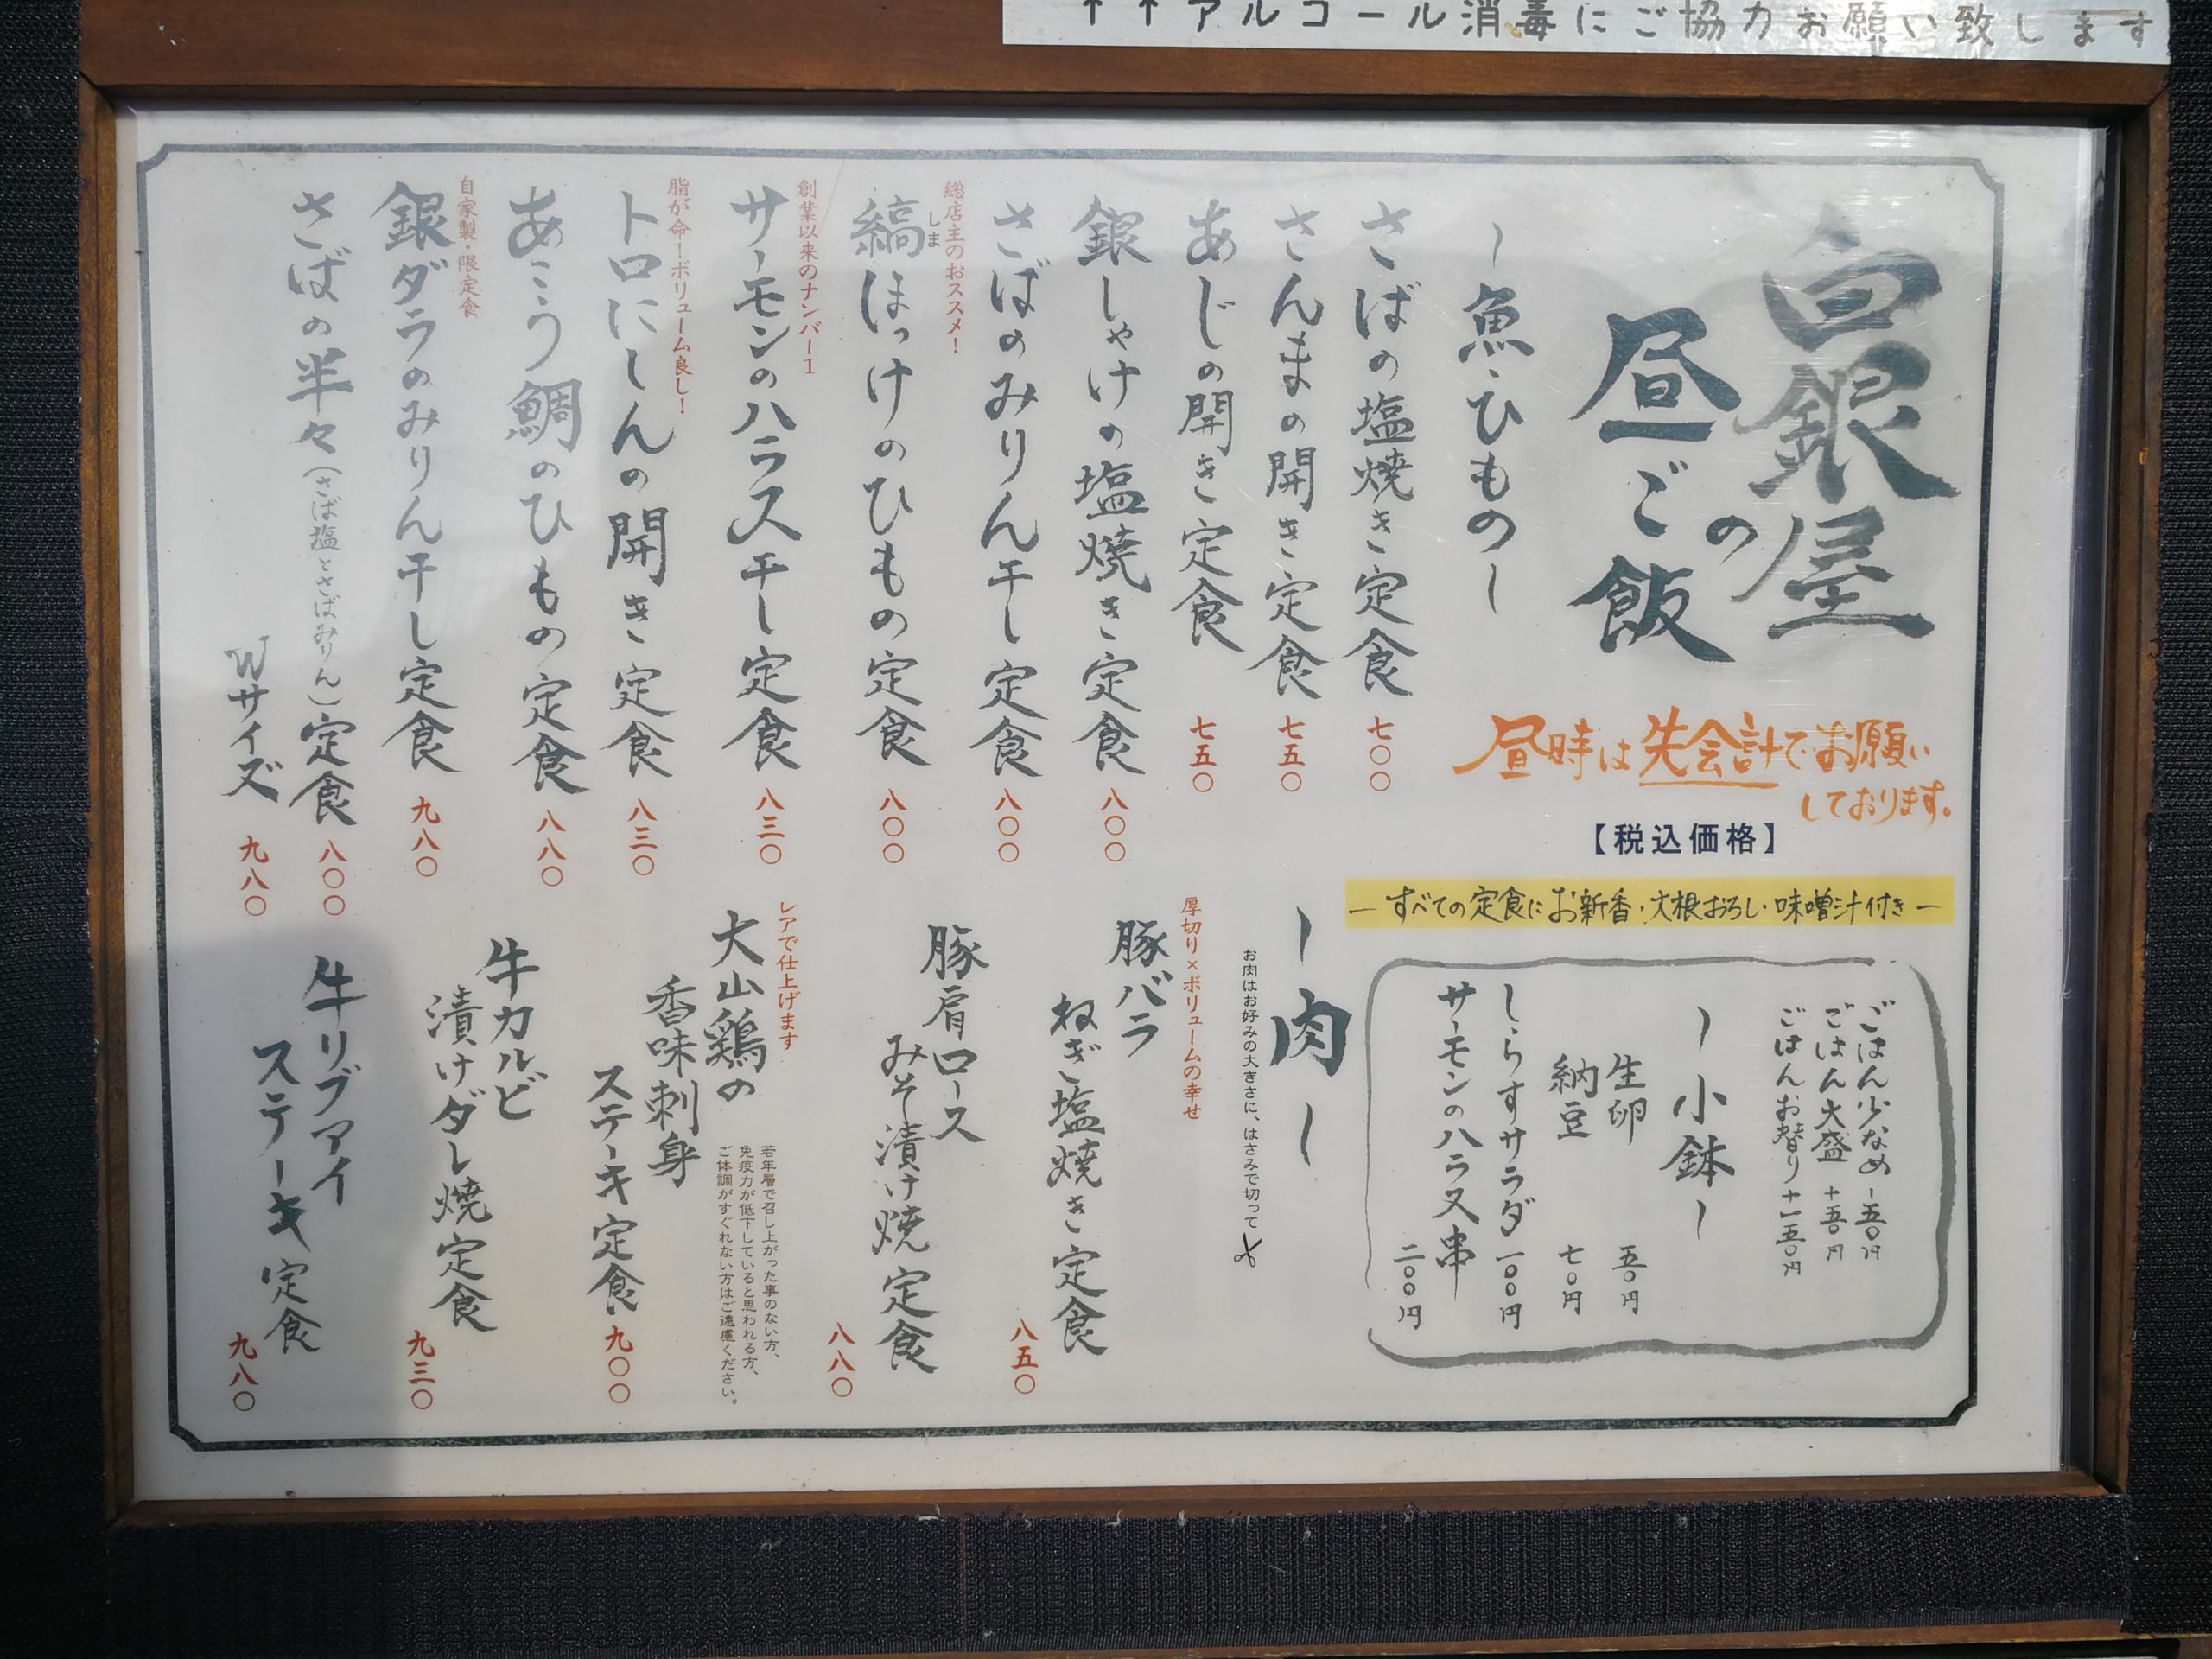 ↑↑アルコール消毒にご協力お願い致します
白銀屋の
昼ご飯
昼時は先会計でお願い
しております。
【税込価格】
―すべての定食にお新香・大根おろし・味噌汁付き―
～魚・ひもの～
さばの塩焼き定食 七〇〇
さんまの開き定食 七五〇
あじの開き定食 七五〇
銀しゃけの塩焼き定食 八〇〇
さばのみりん干し定食 八〇〇
総店主のおススメ！
しま
縞ほっけのひもの定食 八〇〇
創業以来のナンバー1
サーモンのハラス干し定食 八三〇
脂が命！ボリューム良し！
トロにしんの開き定食 八三〇
あこう鯛のひもの定食 八八〇
自家製・限定食
銀ダラのみりん干し定食 九八〇
さばの半々(さば塩とさばみりん)定食 八〇〇
Wサイズ 九八〇
ごはん少なめ -五〇円
ごはん大盛 +五〇円
ごはんお替り +一五〇円
～小鉢～
生卵 五〇円
納豆 七〇円
しらすサラダ 一〇〇円
サーモンのハラス串 二〇〇円
～肉～
お肉はお好みの大きさに、はさみで切って
厚切り×ボリュームの幸せ
豚バラ
ねぎ塩焼き定食 八五〇
豚肩ロース
みそ漬け焼定食 八八〇
レアで仕上げます
大山鶏の
香味刺身
ステーキ定食 九〇〇
若年層で召し上がった事のない方、
免疫力が低下していると思われる方、
ご体調がすぐれない方はご遠慮ください。
牛カルビ
漬けダレ焼定食 九三〇
牛リブアイ
ステーキ定食 九八〇